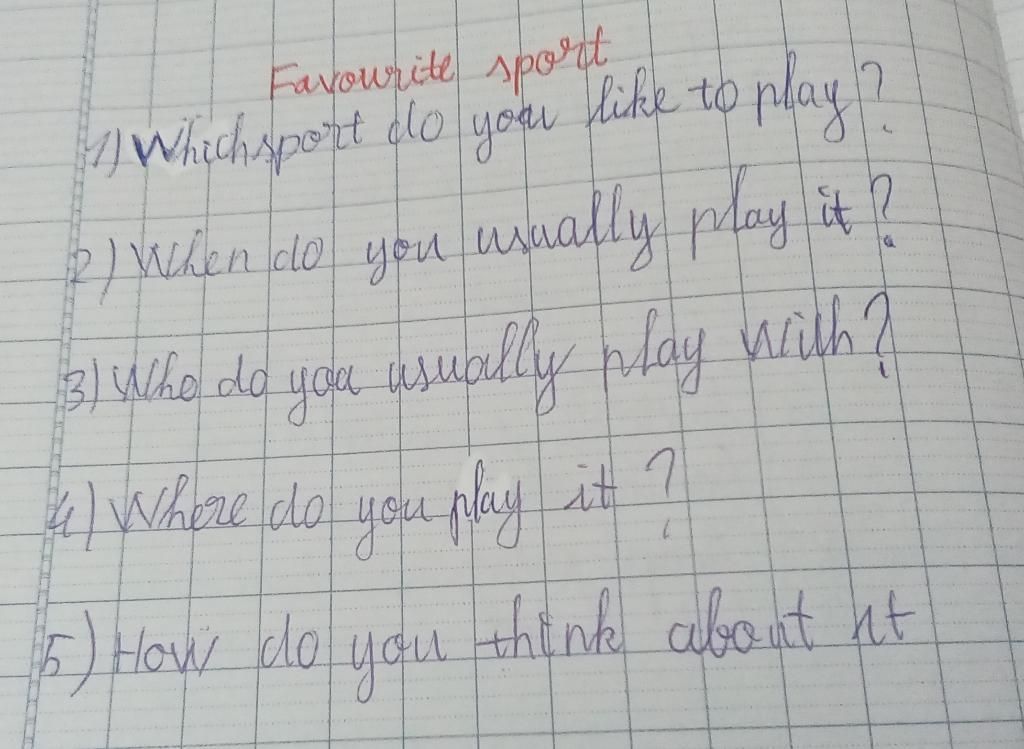 Favourite sport
1) Which sport do you like to play?
2) When do you usually play it?
3) Who do you usually play with?
4) Where do you play it?
5) How do you think about it